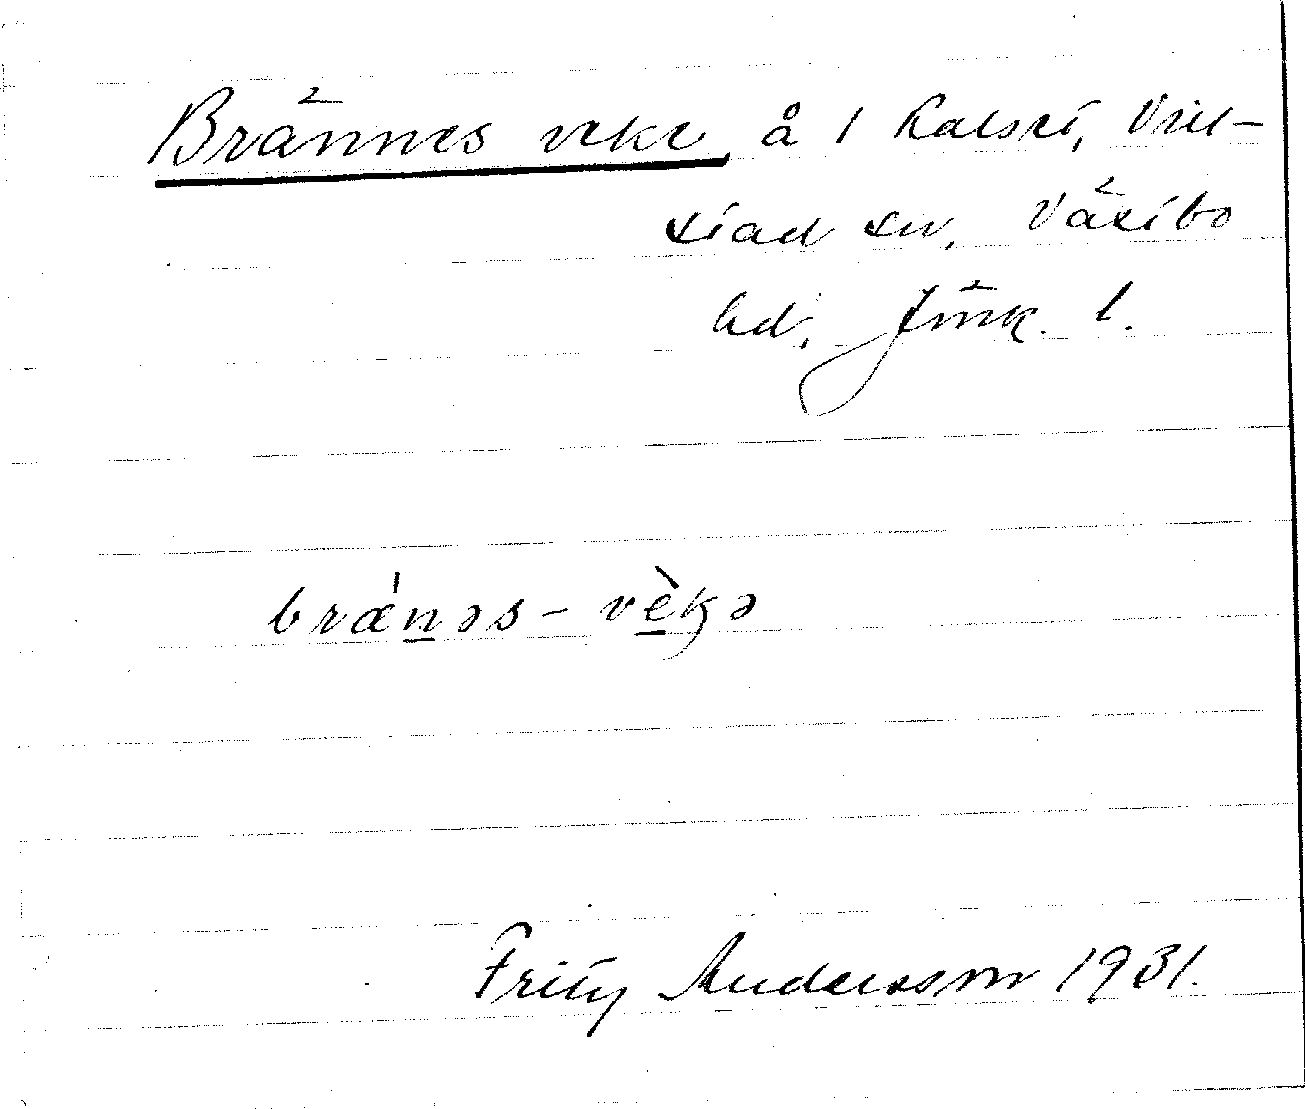 Brännes veke, å i Kalset, Vill-
stad sn, Västbo
hd, Jönk. l.
brǽn̲əs - vè̲kə
Fritz Andersson 1931.